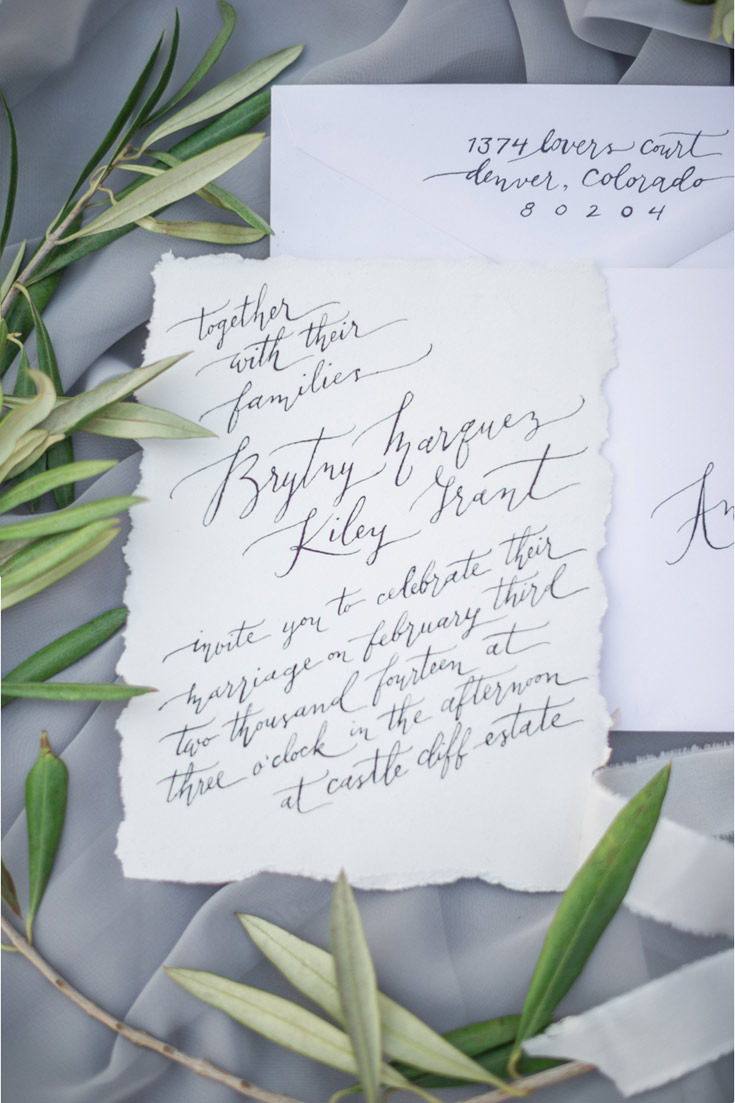 1374 lovers court
denver, Colorado
80204
together
with their
families
Brytny Marquez
Kiley Grant
invite you to celebrate their
marriage on february third
two thousand fourteen at
three o'clock in the afternoon
at castle cliff estate
An